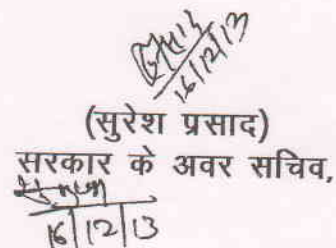 16/12/13
(सुरेश प्रसाद)
सरकार के अवर सचिव,
16/12/13